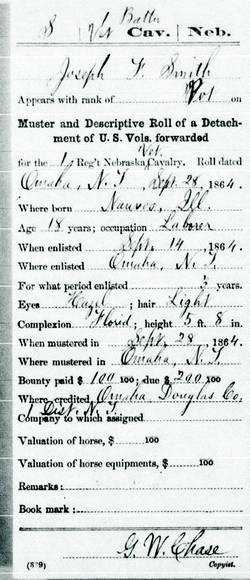 S 1/Vet Battn Cav. Neb.
Joseph F. Smith
Appears with rank of Pvt on
Muster and Descriptive Roll of a Detach-
ment of U. S. Vols. forwarded
Vet.
for the 1 Reg't Nebraska Cavalry. Roll dated
Omaha, N. T., Sept. 28, 1864.
Where born Nauvoo, Ill.
Age 18 years; occupation Laborer
When enlisted Sept. 14, 1864.
Where enlisted Omaha, N. T.
For what period enlisted 3 years.
Eyes Hazel; hair Light
Complexion Florid; height 5 ft. 8 in.
When mustered in Sept. 28, 1864.
Where mustered in Omaha, N. T.
Bounty paid $ 100 100; due $ 200 100
Where credited Omaha, Douglas Co.
1 Dist. N. T.
Company to which assigned
Valuation of horse, $ 100
Valuation of horse equipments, $ 100
Remarks:
Book mark:
G. W. Chase
(839) Copyist.